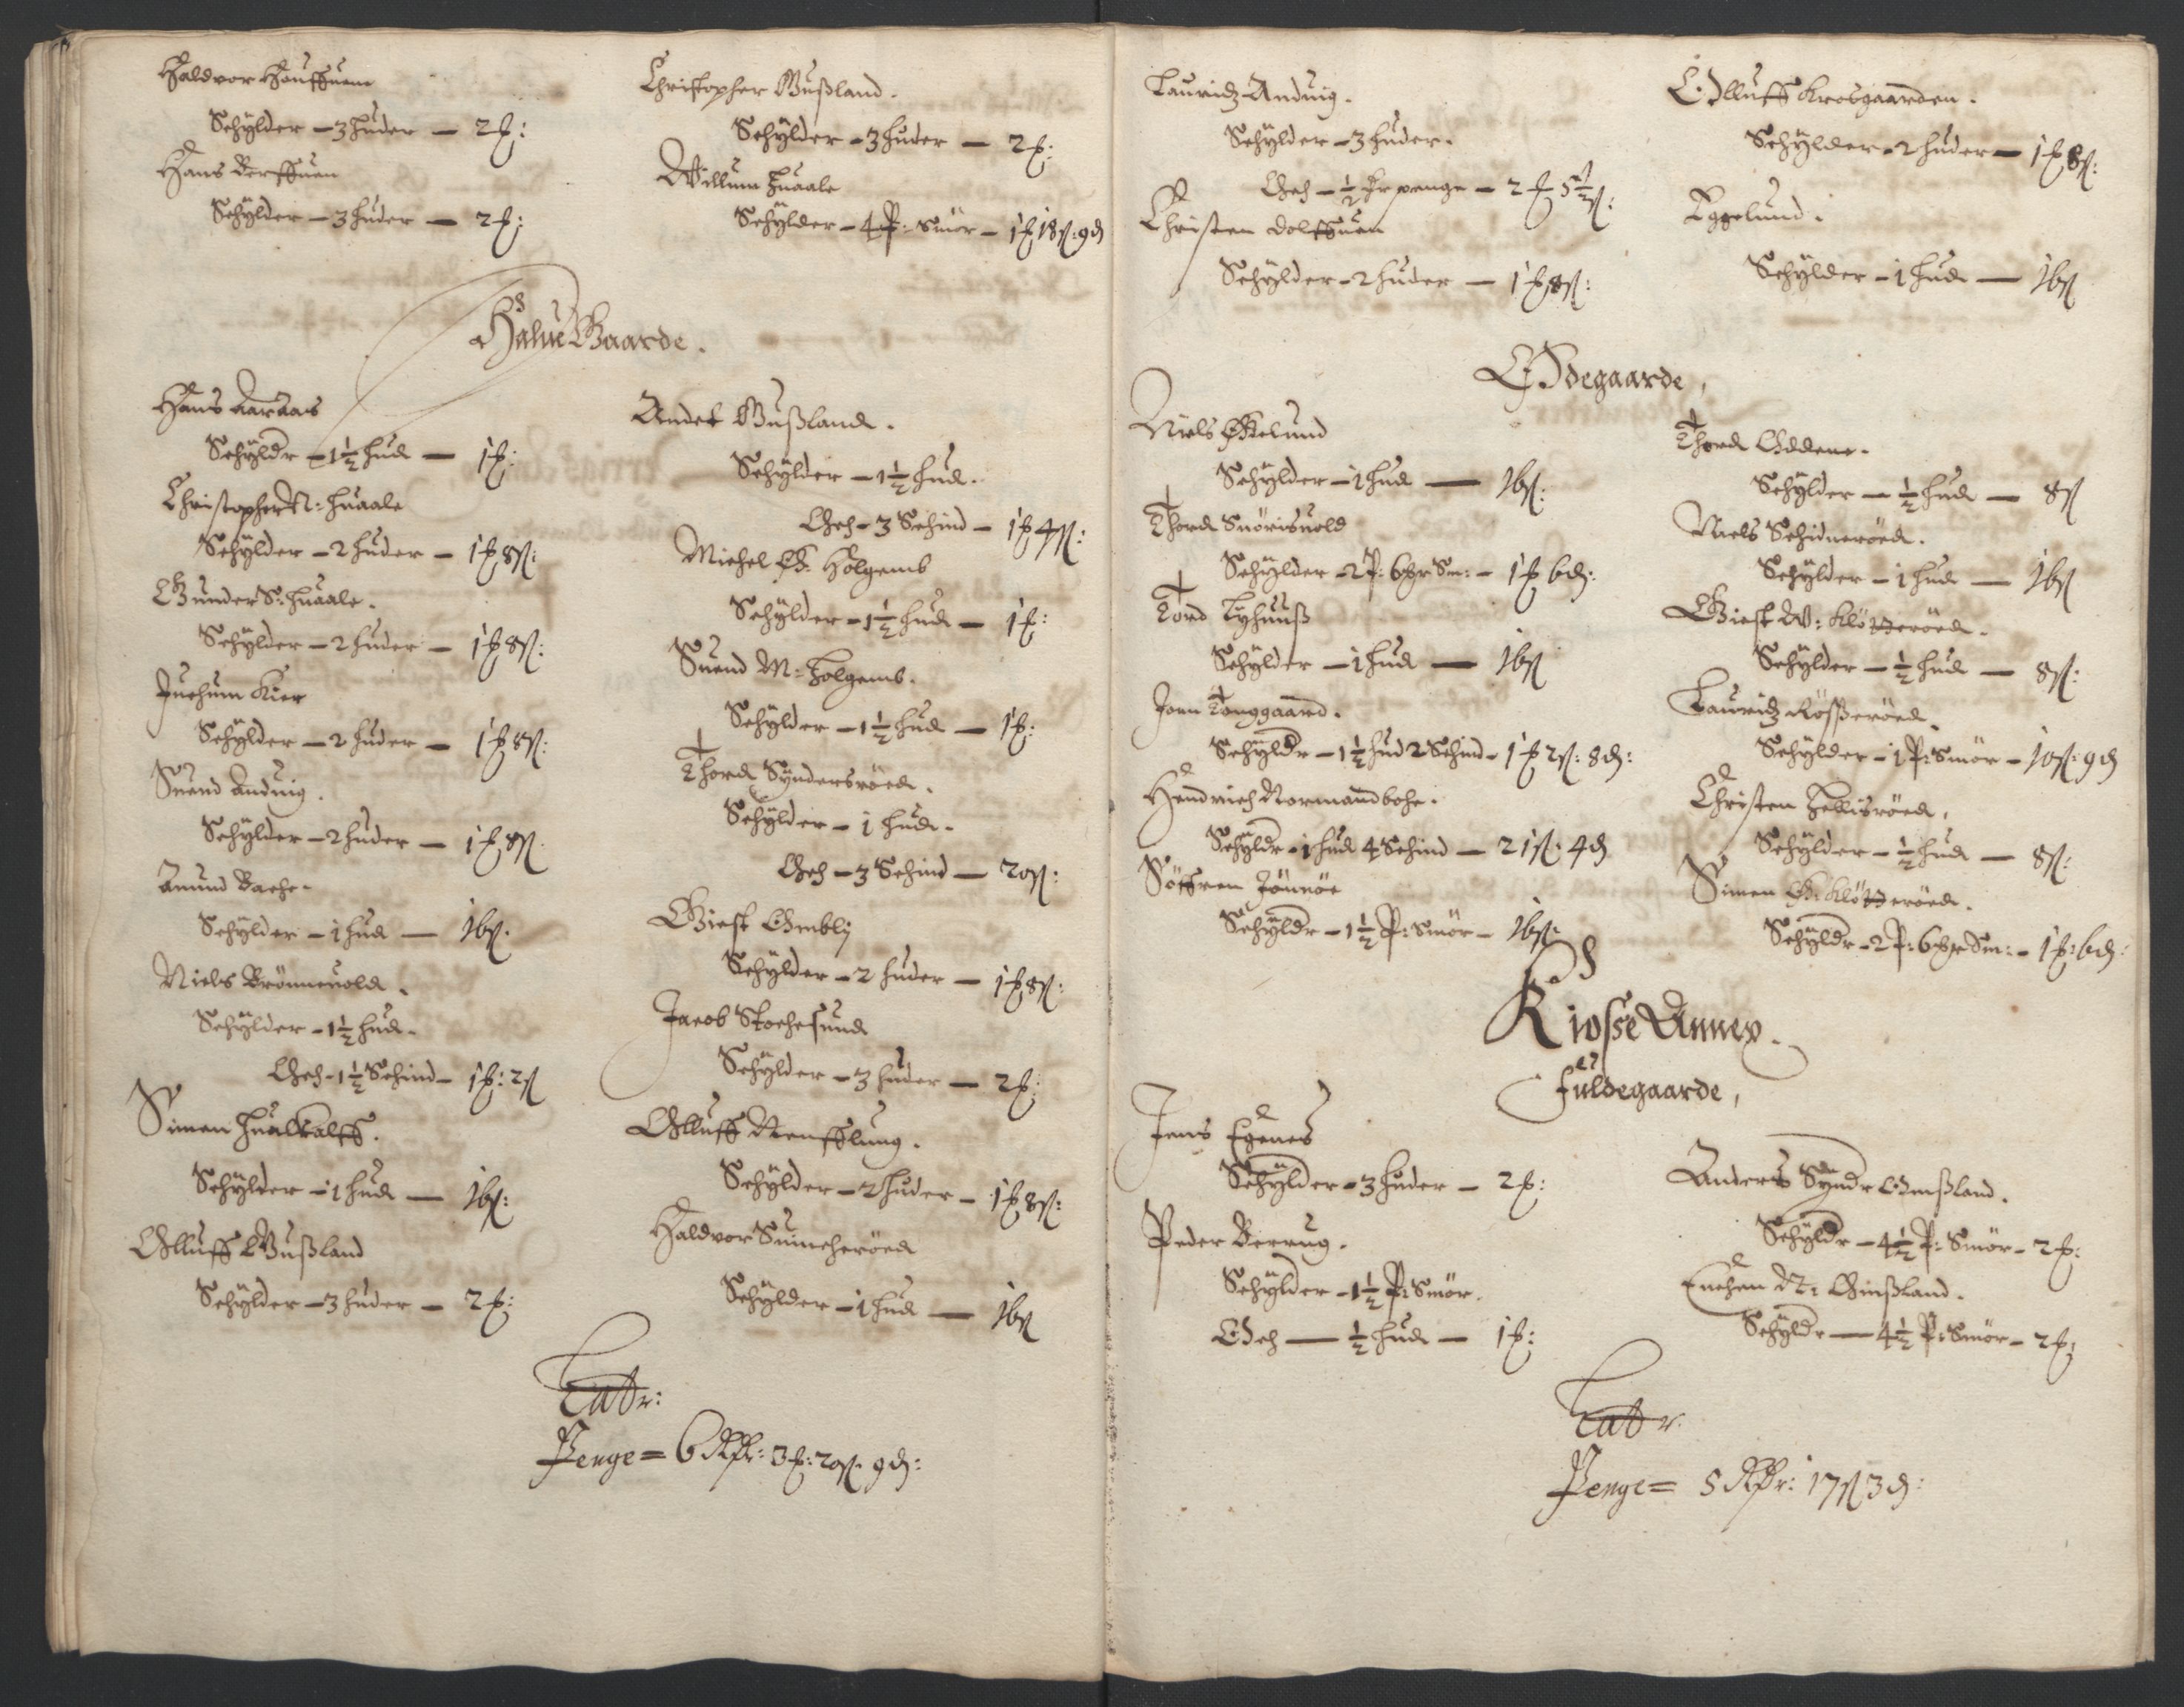 Haldvor Hauffuem
Schÿlder – 3 huder – 2 ℔:
Hans Berffuen
Schÿlder – 3 huder – 2 ℔:
Christopher Gußland.
Schÿlder – 3 huder – 2 ℔:
Willum Huaale
Schÿlder – 4 P: Smör – 1 ℔ 18 ß: 9 d
Halue Gaarde.
Hans Aaraas
Schÿldr – 1½ hud – 1 ℔:
Christopher N: Huaale
Schÿlder – 2 huder – 1 ℔ 8 ß:
Gunder S: Huaale.
Schÿlder – 2 huder – 1 ℔ 8 ß:
Juchum Kier
Schÿlder – 2 huder – 1 ℔ 8 ß:
Suend Anduig.
Schÿlder – 2 huder – 1 ℔ 8 ß.
Amund Bache.
Schÿlder – 1 hud – 16 ß.
Niels Brönneuold.
Schÿlder – 1½ hud.
Och – 1½ Schind – 1 ℔: 2 ß
Simen Hualkalff.
Schÿlder – 1 hud – 16 ß:
Olluff Gußland
Schÿlder – 3 huder – 2 ℔:
Andet Gußland.
Schÿlder – 1½ hud.
Och – 3 Schind – 1 ℔ 4 ß:
Michel Ø: Holgems
Schÿlder – 1½ hud – 1 ℔:
Suend M: Holgems.
Schÿlder – 1½ hud – 1 ℔:
Thord Sÿndersröed.
Schÿlder – 1 hud.
Och – 3 Schind – 20 ß:
Giest Ombly
Schÿlder – 2 huder – 1 ℔ 8 ß:
Jacob Stochesund
Schÿlder – 3 huder – 2 ℔:
Olluff Refflung.
Schÿlder – 2 huder – 1 ℔ 8 ß:
Haldvor Suincheröed
Schÿlder – 1 hud – 16 ß
Latr:
Penge = 6 Rdr: 3 ℔: 20 ß. 9 d:
Lauridz Anduig.
Schÿlder – 3 huder.
Och – ½ pr penge – 2 ℔ 5½ ß:
Christen Dolffuen
Schÿlder – 2 huder – 1 ℔ 8 ß:
Olluff Krosgaarden.
Schÿlder – 2 huder – 1 ℔ 8 ß:
Eggelund.
Schÿlder – 1 hud – 16 ß
Ødegaarde,
Niels Økelund
Schÿlder – 1 hud – 16 ß:
Thord Snörisuold
Schÿlder – 2 P: 6 mr Sm: – 1 ℔ 6 d:
Tord Lyhuuß
Schÿlder – 1 hud – 16 ß
Joen Tonggaard.
Schÿldr – 1½ hud 2 Schind – 1 ℔ 2 ß: 8 d:
Hendrich Normandbohe.
Schÿldr – 1 hud 4 Schind – 21 ß: 4 d
Söffren Jönnöe
Schÿldr – 1½ P: Smör – 16 ß:
Thord Oddene.
Schÿlder – ½ hud – 8 ß
Niels Schidneröed.
Schÿlder – 1 hud – 16 ß
Giest W: Klötzeröed.
Schÿlder – ½ hud – 8 ß:
Lauridz Rößeröed.
Schÿlder – 1 P: Smör – 10 ß: 9 d
Christen Hellisröed,
Schÿlder – ½ hud – 8 ß:
Simen Ø: Klötzeröed.
Schÿldr – 2 P: 6 mr Sm: – 1 ℔: 6 d:
Kiosse Annex.
Fuldegaarde,
Jens Egenes
Schÿlder – 3 huder – 2 ℔:
Peder Berrug.
Schÿlder – 1½ P: Smör.
Och – ½ hud – 1 ℔:
Anders Syndr Omßland.
Schÿldr – 4½ P: Smör – 2 ℔:
Enchen N: Omßland.
Schÿldr – 4½ P: Smör – 2 ℔:
Latr.
Penge = 5 Rdr: 17 ß 3 d: